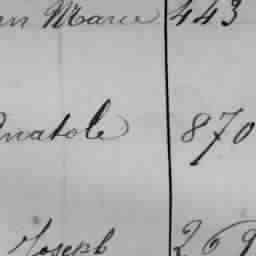 Marie 443
Anatole 870
Joseph 269